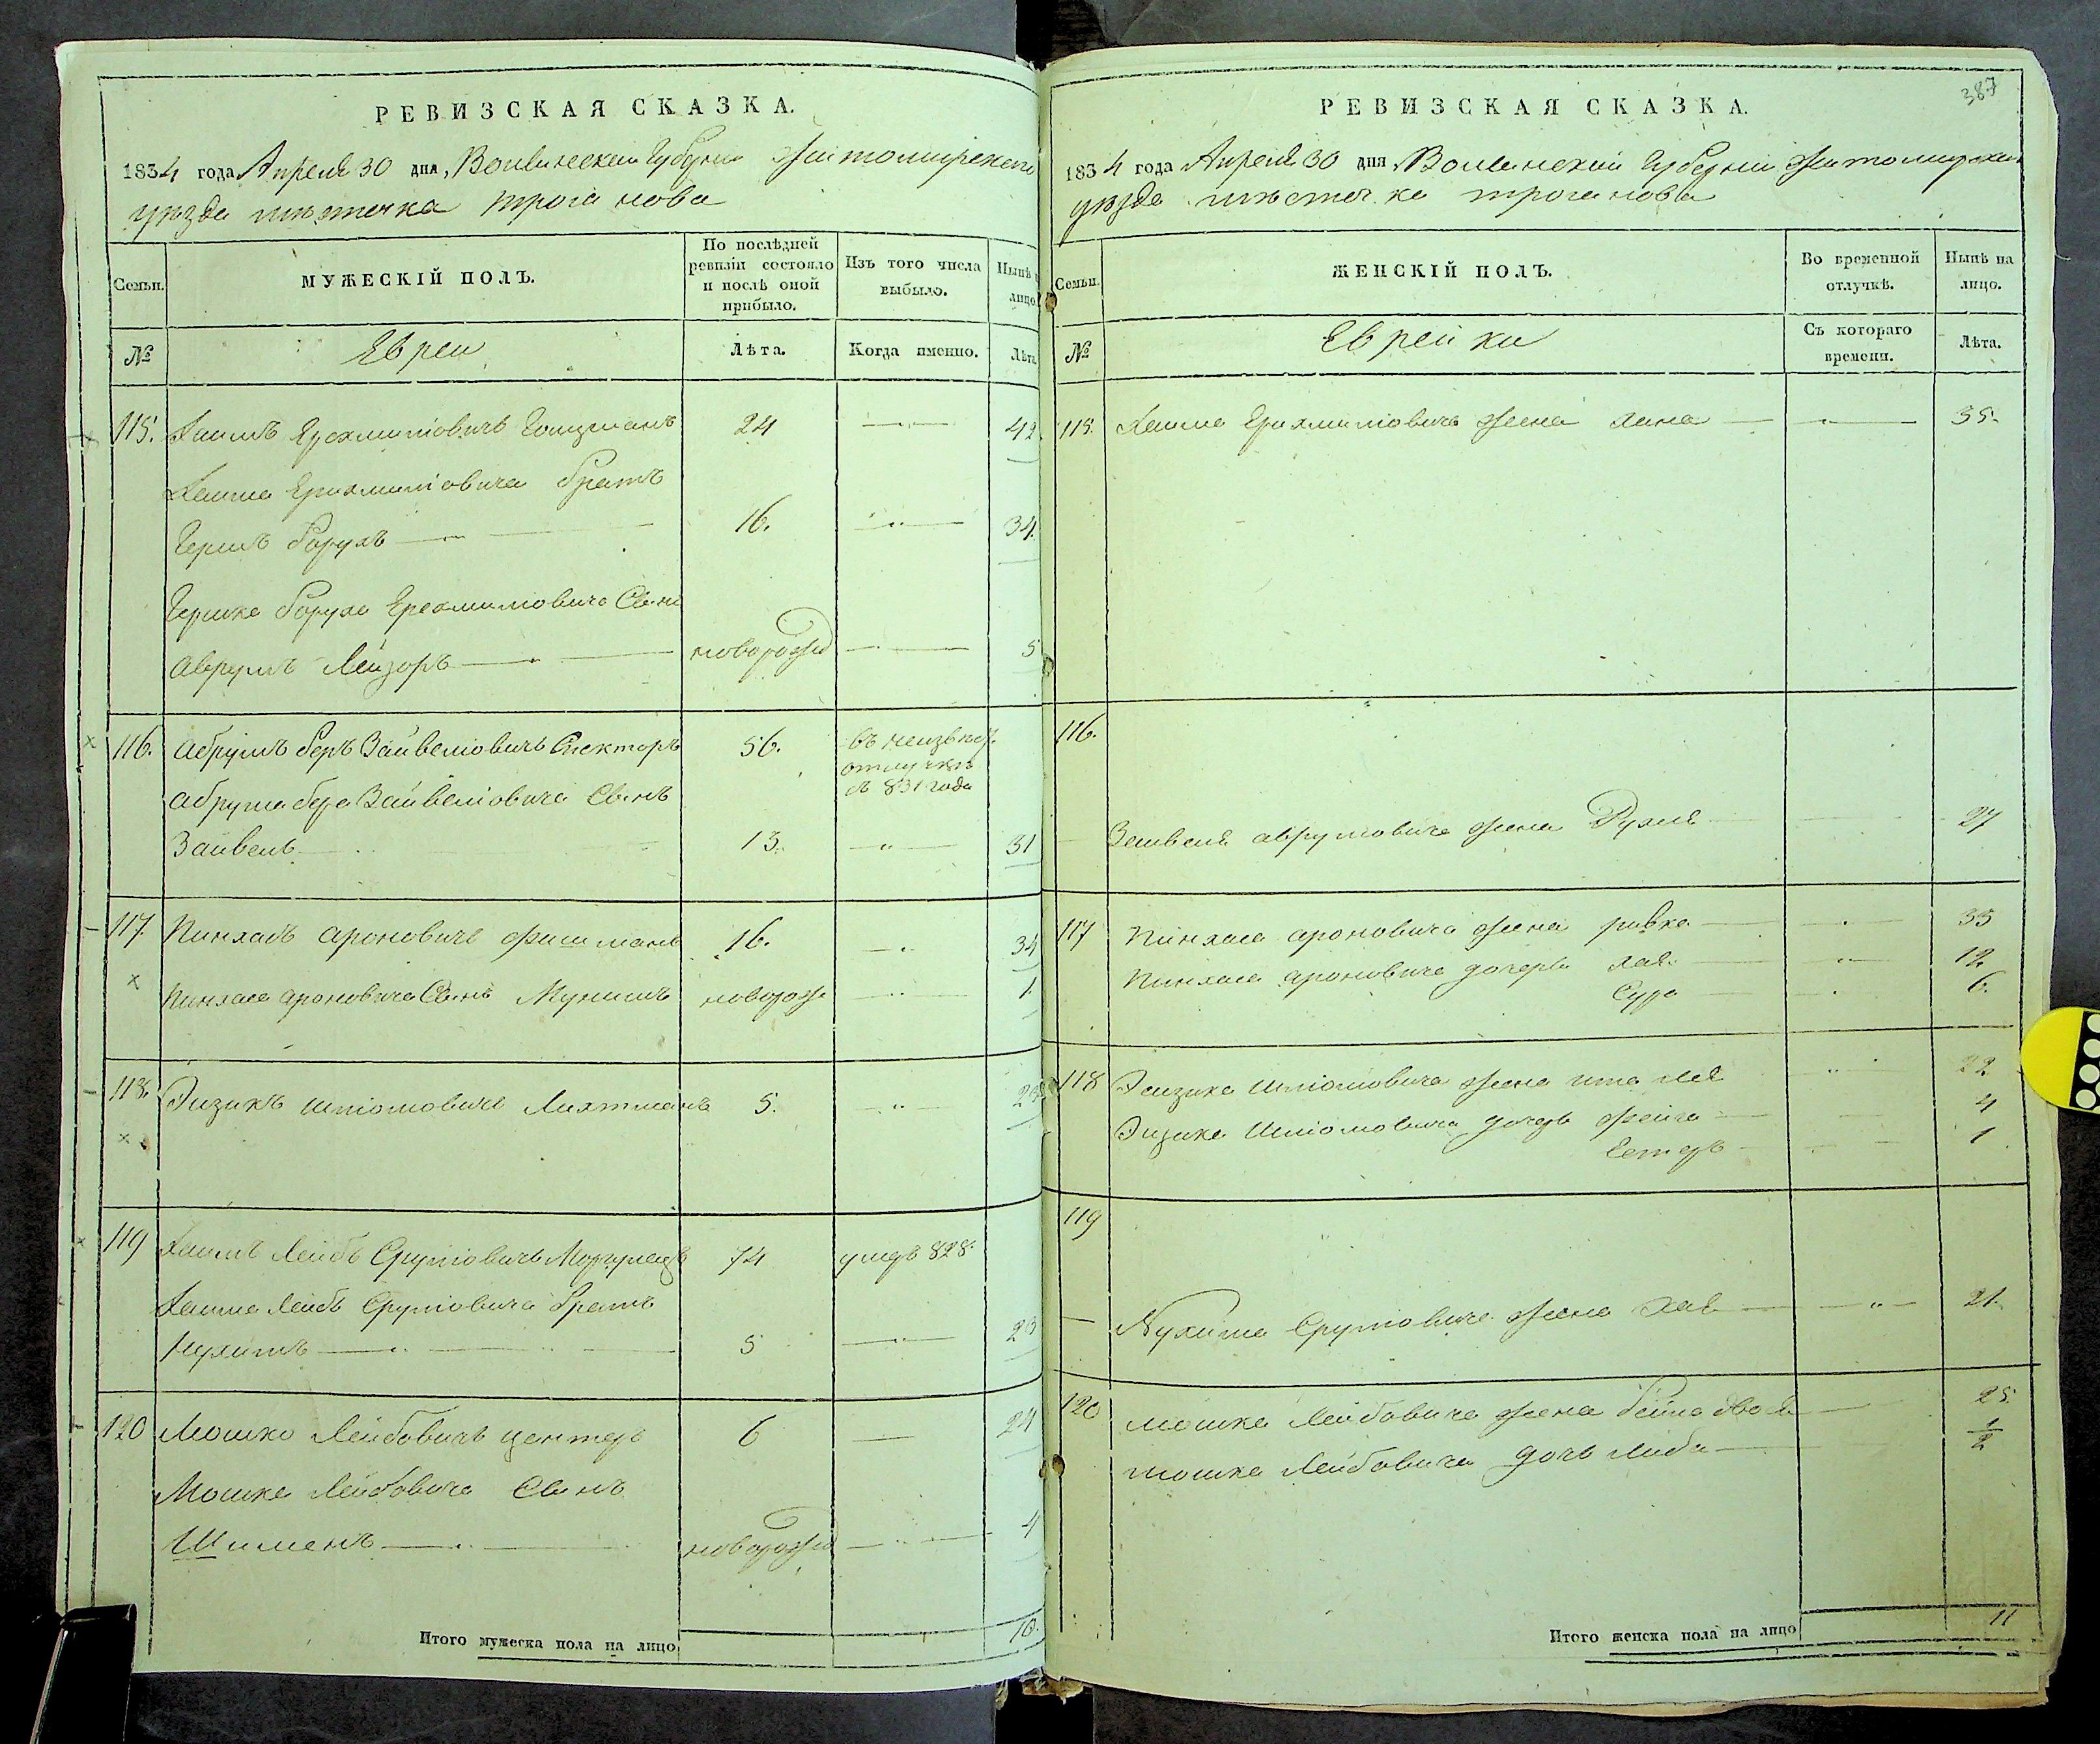 РЕВИЗСКАЯ СКАЗКА.
1834 года Апреля 30 дня, Волынской Губернии Житомирского
уезда местечка Троянова
Семьи.
МУЖЕСКІЙ ПОЛЪ.
По послѣдней ревизіи состояло и послѣ оной прибыло.
Изъ того числа выбыло.
Нынѣ на лицо.
№
Евреи
Лѣта.
Когда именно.
Лѣта
115. Хаимъ Ерохмиловичъ 24 42.
Хаима Ерохмиловича братъ
Гершъ Борухъ 16. 34.
Гершка Боруха Ерохмиловича Сынъ
Аврумъ Лейзоръ новорожд 5
116. Абрумъ Беръ Зайвеловичъ Спекторъ 56. въ неизвест. отлучке съ 831 года
Абрума Бера Зайвеловича Сынъ
Зайвель 13. 31
117. Пинхасъ Ароновичъ Фишманъ 16. 34
Пинхаса Ароновича Сынъ новорож 1.
118. Эизикъ Шлёмовичъ Лихтманъ 5. 23
119 Хаимъ Лейбъ Срулёвичъ 74 умеръ 828.
Хаима Лейбъ Срулёвича братъ
Нухимъ 5 23
120 Мошко Лейбовичъ 6 24
Мошка Лейбовича Сынъ
Шименъ новорожд 4
Итого мужеска пола на лицо 10.
387
РЕВИЗСКАЯ СКАЗКА.
1834 года Апреля 30 дня Волынской Губернии Житомирского
уезда местечка Троянова
Семьи.
ЖЕНСКІЙ ПОЛЪ.
Во временной отлучкѣ.
Нынѣ на лицо.
№
Еврейки
Съ котораго времени.
Лѣта.
115. Хаима Ерохмиловича жена Хана 35.
116.
Зайвеля Аврумовича жена Рухля 27
117 Пинхаса Ароновича жена Ривка 33
Пинхаса Ароновича дочери Хая 12
Сура 6.
118 Эйзика Шлёмовича жена Ита Лея 22
Эйзика Шлёмовича дочери Фейга 4
Естеръ 1
119
Нухима Срулёвича жена Хая 21.
120 Мошка Лейбовича жена Двойя 25.
Мошка Лейбовича дочь Либа 1/2
Итого женска пола на лицо 11